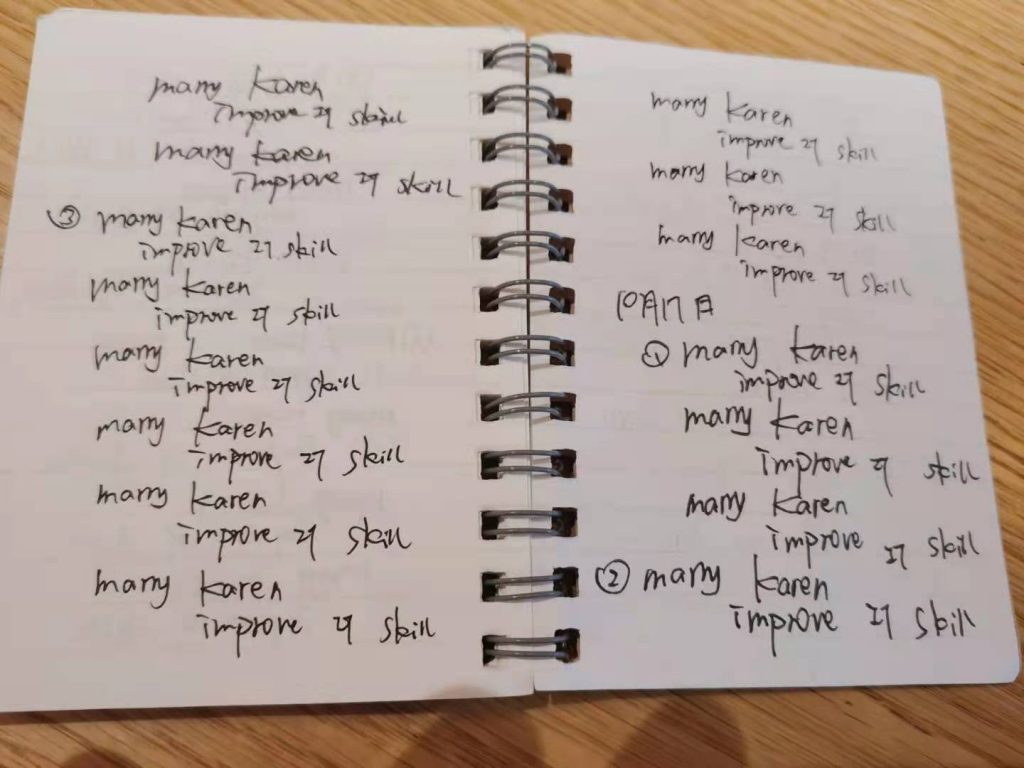 marry karen
improve skill
marry karen
improve skill
③ marry karen
improve skill
marry karen
improve skill
marry karen
improve skill
marry karen
improve skill
marry karen
improve skill
marry karen
improve skill
marry karen
improve skill
marry karen
improve skill
marry karen
improve skill
10月17日
① marry karen
improve skill
marry karen
improve skill
marry karen
improve skill
② marry karen
improve skill